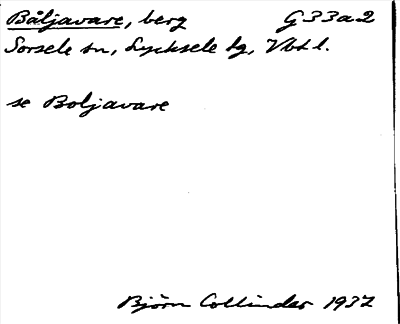 Båljavare, berg G33a2
Sorsele sn, Lycksele lg, Vbtl.
se Boljavare
Björn Collinder 1937